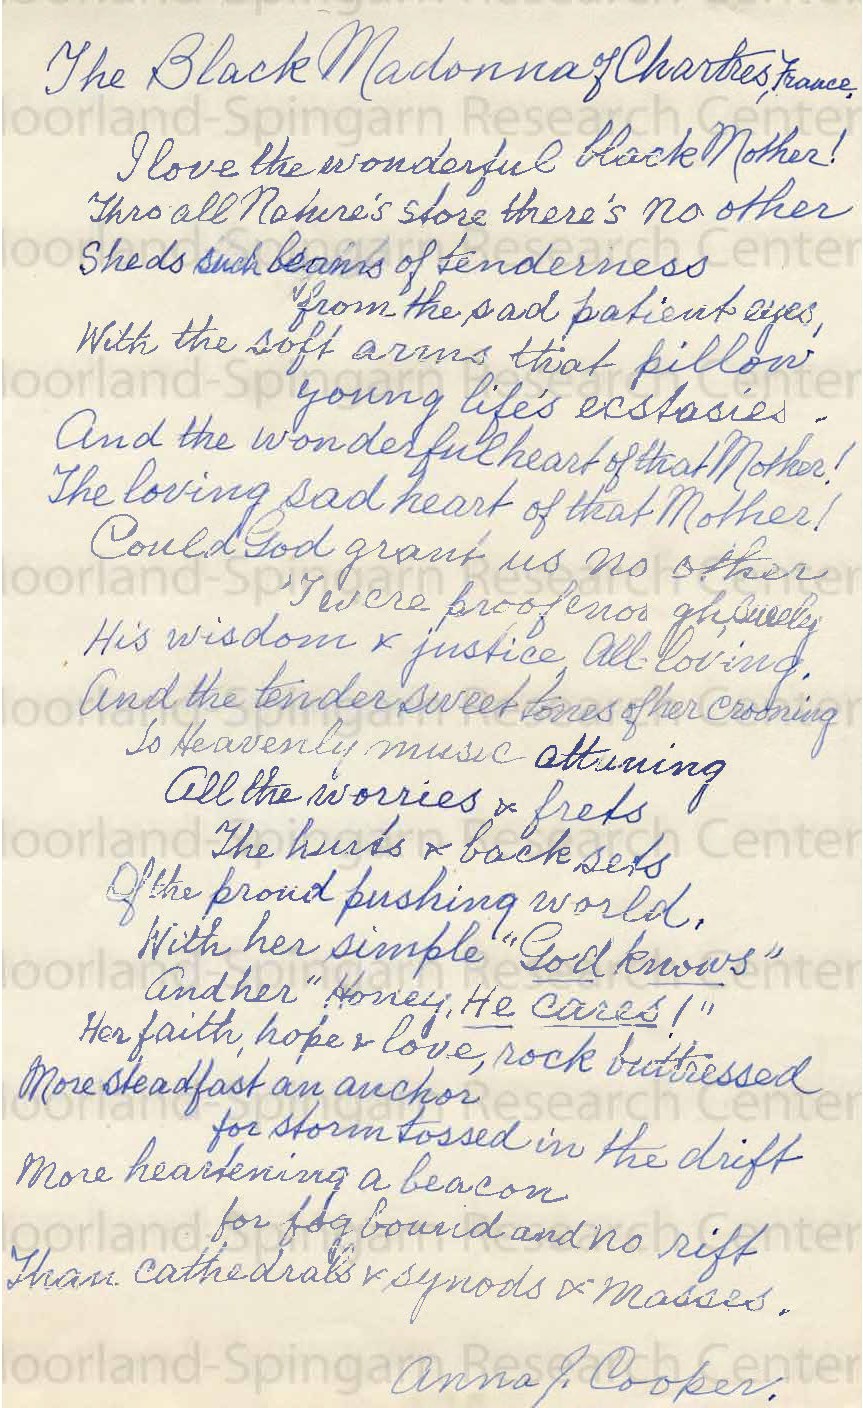 The Black Madonna of Chartres, France.
I love the wonderful black Mother!
Thro all Nature's store there's no other
Sheds such beams of tenderness
from the sad patient eyes,
With the soft arms that pillow
young life's ecstasies.
And the wonderful heart of that Mother!
The loving sad heart of that Mother!
Could God grant us no other
'Twere proof enough, surely
His wisdom & justice, All-loving.
And the tender sweet tones of her crooning
So Heavenly music attuning
All the worries & frets
The hurts & back sets
Of the proud pushing world.
With her simple "God knows"
And her "Honey, He cares!"
Her faith, hope & love, rock buttressed
More steadfast an anchor
for storm tossed in the drift
More heartening a beacon
for fog bound and no rift
Than cathedrals & synods & Masses.
Anna J. Cooper.
Moorland-Spingarn Research Center